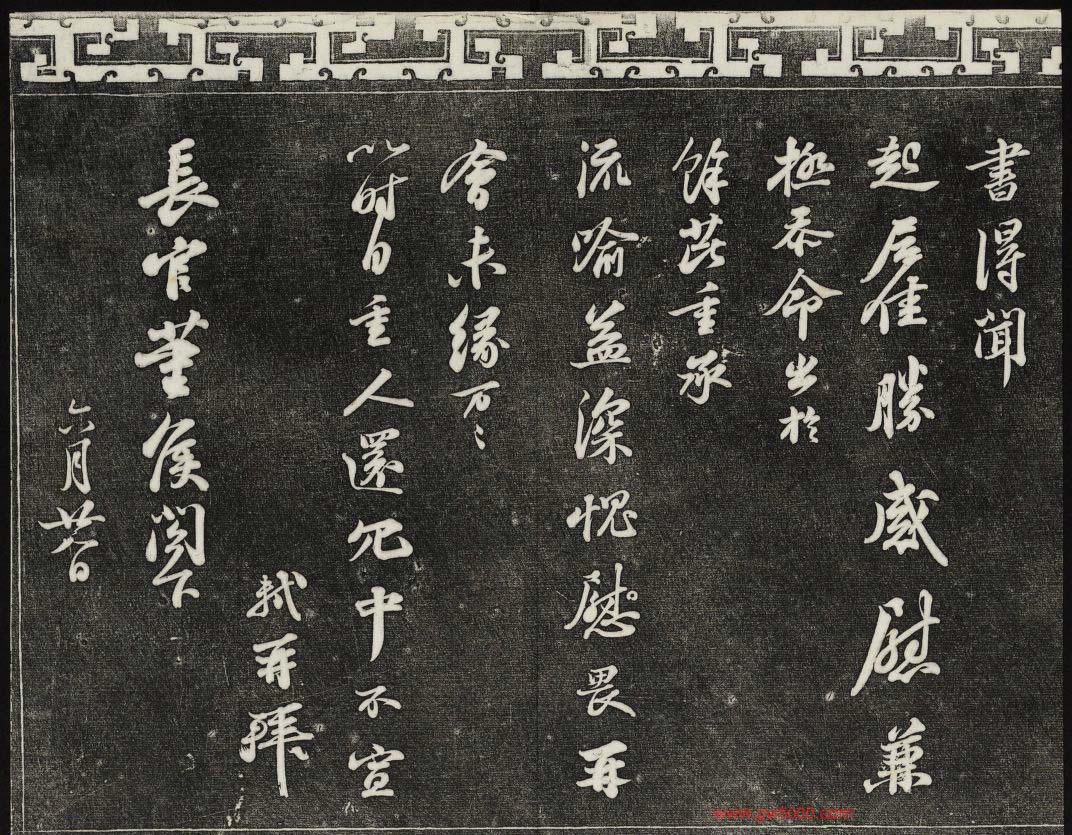 書得聞
起居佳勝感慰兼
極忝命出於
餘芘重承
流喻益深愧慰畏再
會未緣万〻
以时自重人還冗中不宣
軾再拜
長官董侯閣下
六月廿八日
www.gw5000.com